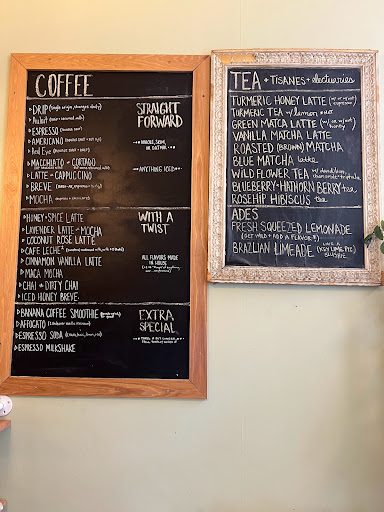 COFFEE
DRIP (single origin, changes daily)
AuLait
ESPRESSO
AMERICANO
Red Eye
MACCHIATO or CORTADO
LATTE or CAPPUCCINO
BREVE
MOCHA
STRAIGHT
FORWARD
WHOLE, SKIM,
OR OAT MILK
ANYTHING ICED
HONEY + SPICE LATTE
LAVENDER LATTE or MOCHA
COCONUT ROSE LATTE
CAFE LECHE
CINNAMON VANILLA LATTE
MACA MOCHA
CHAI or DIRTY CHAI
ICED HONEY BREVE
WITH A
TWIST
ALL FLAVORS MADE
IN HOUSE
BANANA COFFEE SMOOTHIE
AFFOGATO
ESPRESSO SODA
ESPRESSO MILKSHAKE
EXTRA
SPECIAL
TEA + TISANES + electuaries
TURMERIC HONEY LATTE (w/ or w/out espresso)
TURMERIC TEA w/ lemon
GREEN MATCA LATTE (w/ or w/out honey)
VANILLA MATCHA LATTE
ROASTED (BROWN) MATCHA
BLUE MATCHA latte
WILD FLOWER TEA w/ dandelion,
chamomile +
BLUEBERRY-HATHORN BERRY tea
ROSEHIP HIBISCUS tea
ADES
FRESH SQUEEZED LEMONADE
(GET WILD + ADD A FLAVOR!!)
BRAZLIAN LIMEADE (LIKE A KEY LIME PIE SLUSHIE)